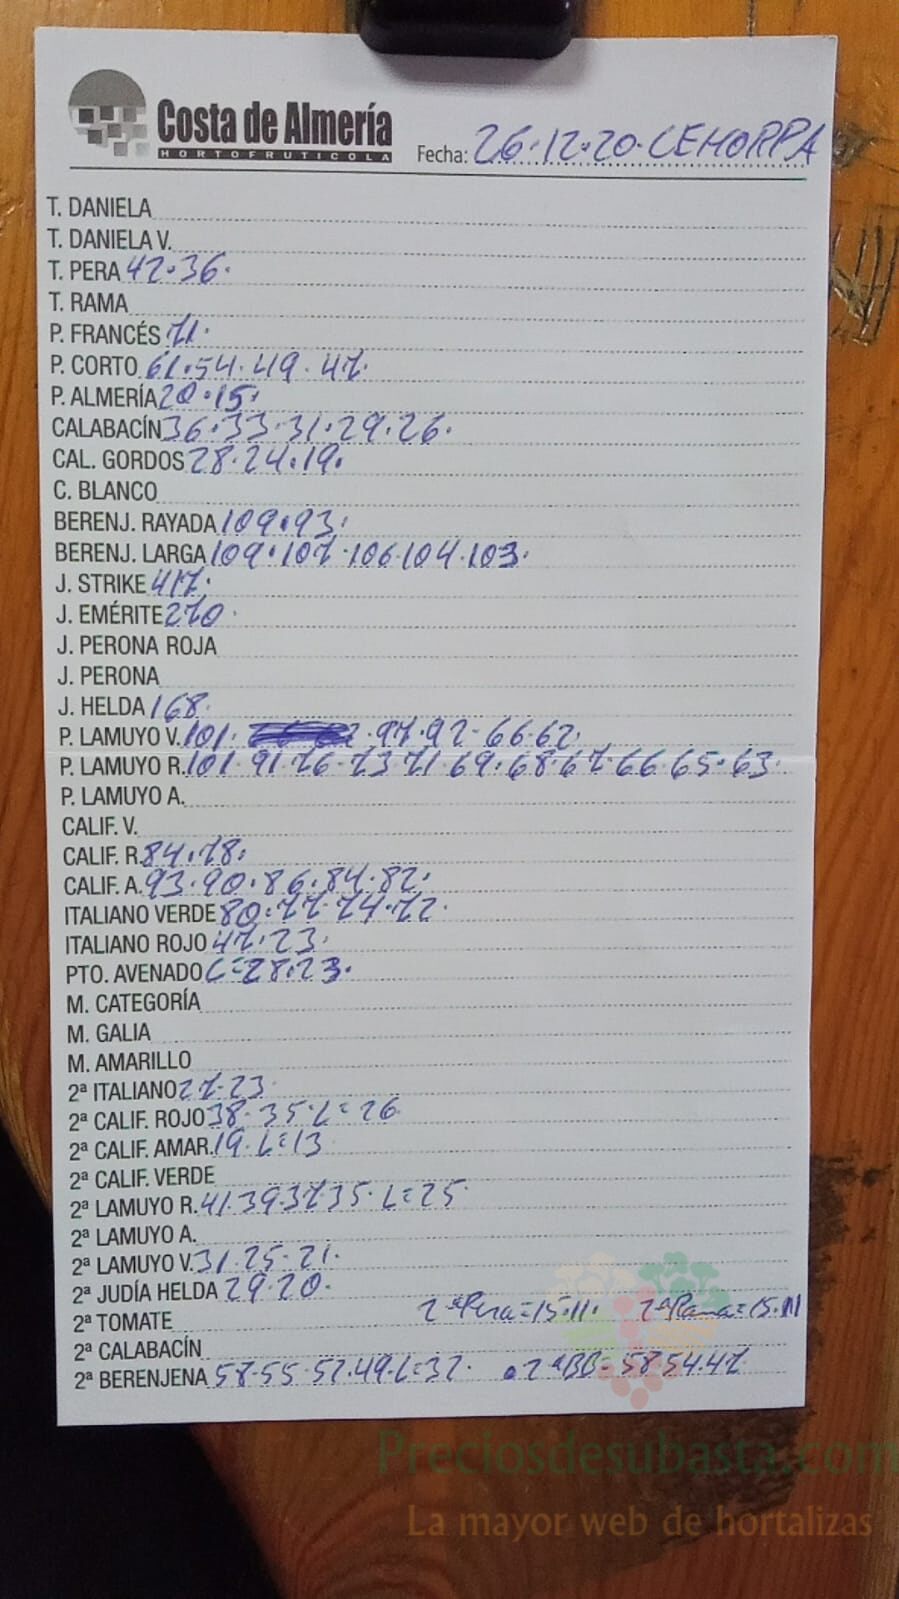 Costa de Almería
HORTOFRUTICOLA
Fecha: 26.12.20. CEHORPA
T. DANIELA
T. DANIELA V.
T. PERA 42.36.
T. RAMA
P. FRANCÉS 71.
P. CORTO 61.54.49.47.
P. ALMERÍA 20.15.
CALABACÍN 36.33.31.29.26.
CAL. GORDOS 28.24.19.
C. BLANCO
BERENJ. RAYADA 109.93.
BERENJ. LARGA 109.107.106.104.103.
J. STRIKE 417.
J. EMÉRITE 270.
J. PERONA ROJA
J. PERONA
J. HELDA 168.
P. LAMUYO V. 101. .97.92-66.62.
P. LAMUYO R. 101.91.76-73.71.69.68.67.66.65.63.
P. LAMUYO A.
CALIF. V.
CALIF. R. 84.78.
CALIF. A. 93.90.86.84.82.
ITALIANO VERDE 80.77.74.72.
ITALIANO ROJO 47.23.
PTO. AVENADO L=28.23.
M. CATEGORÍA
M. GALIA
M. AMARILLO
2ª ITALIANO 27.23
2ª CALIF. ROJO 38.35.L=26
2ª CALIF. AMAR. 19.L=13
2ª CALIF. VERDE
2ª LAMUYO R. 41.39.37.35.L=25
2ª LAMUYO A.
2ª LAMUYO V. 31.25.21.
2ª JUDÍA HELDA 29.20.
2ª TOMATE 2ªPera=15.11. 2ªRama=15.11
2ª CALABACÍN
2ª BERENJENA 58.55.52.49.L=32 .2ªBB=58.54.47
Preciosdesubasta.com
La mayor web de hortalizas